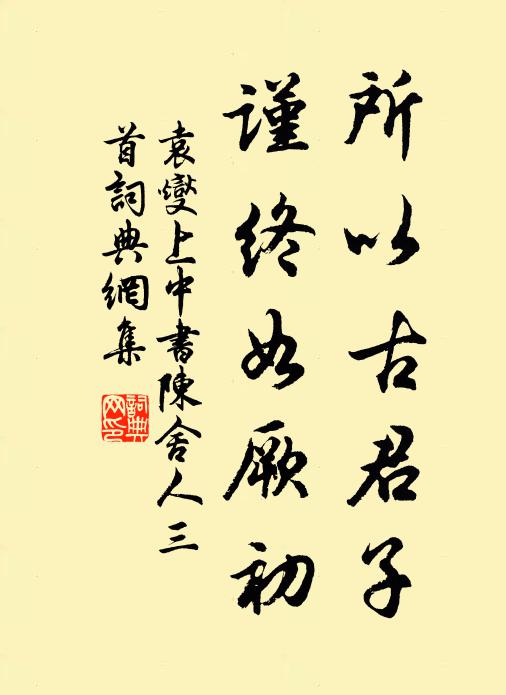 所以古君子
謹終如厥初
袁燮上中書陳舍人三
首詞典網集
詞典
网印